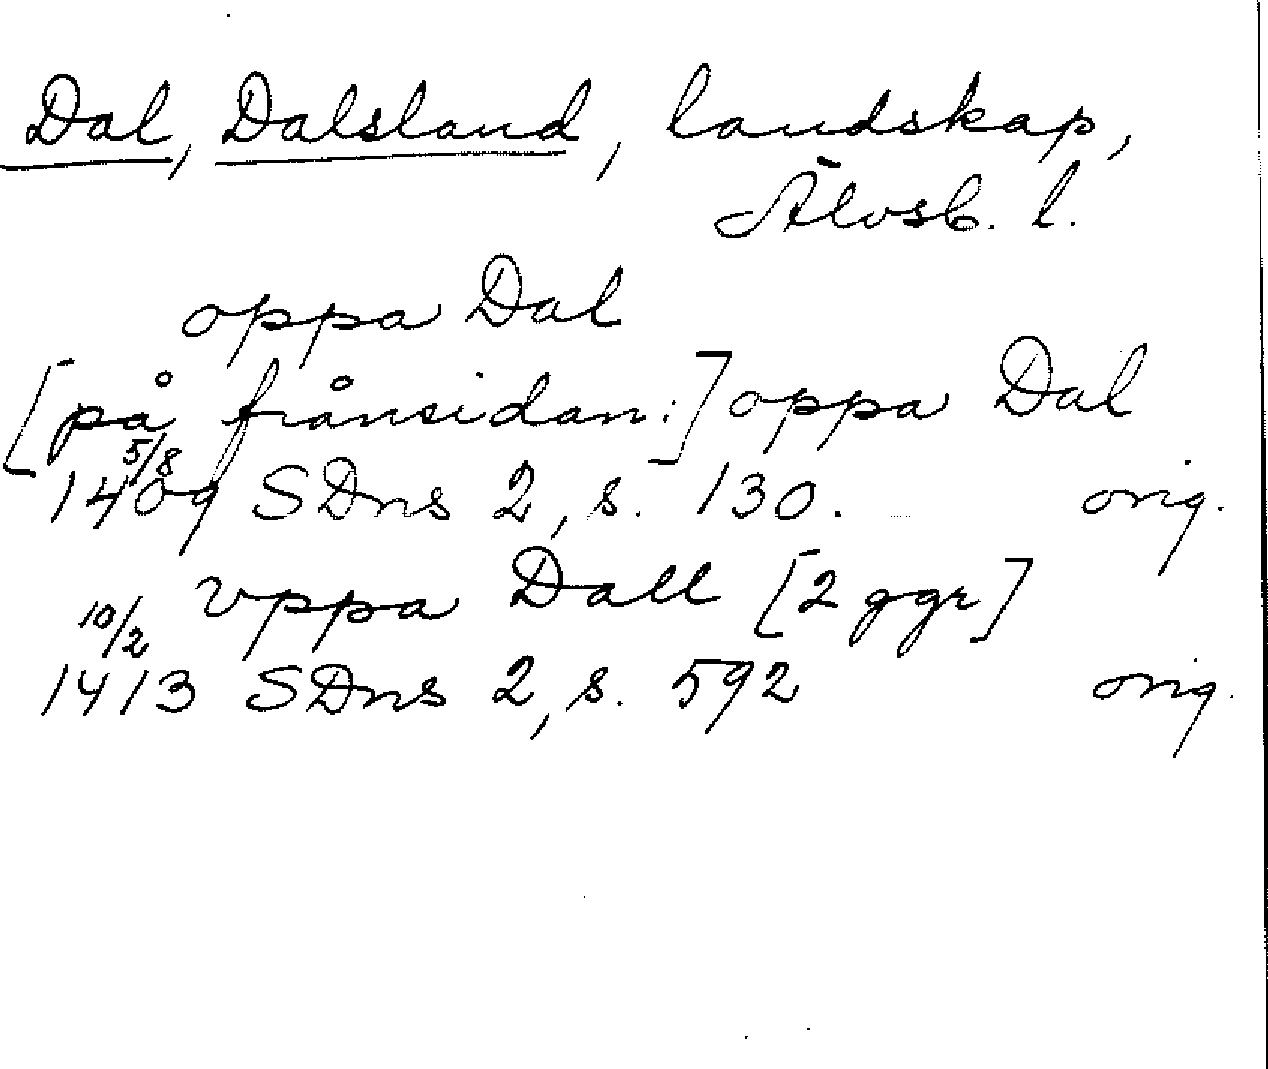 Dal, Dalsland, landskap,
Älvsb. l.
oppa Dal
[på frånsidan:] oppa Dal
5/8
1409 SDns 2, s. 130. orig.
vppa Dall [2 ggr]
10/2
1413 SDns 2, s. 592 orig.